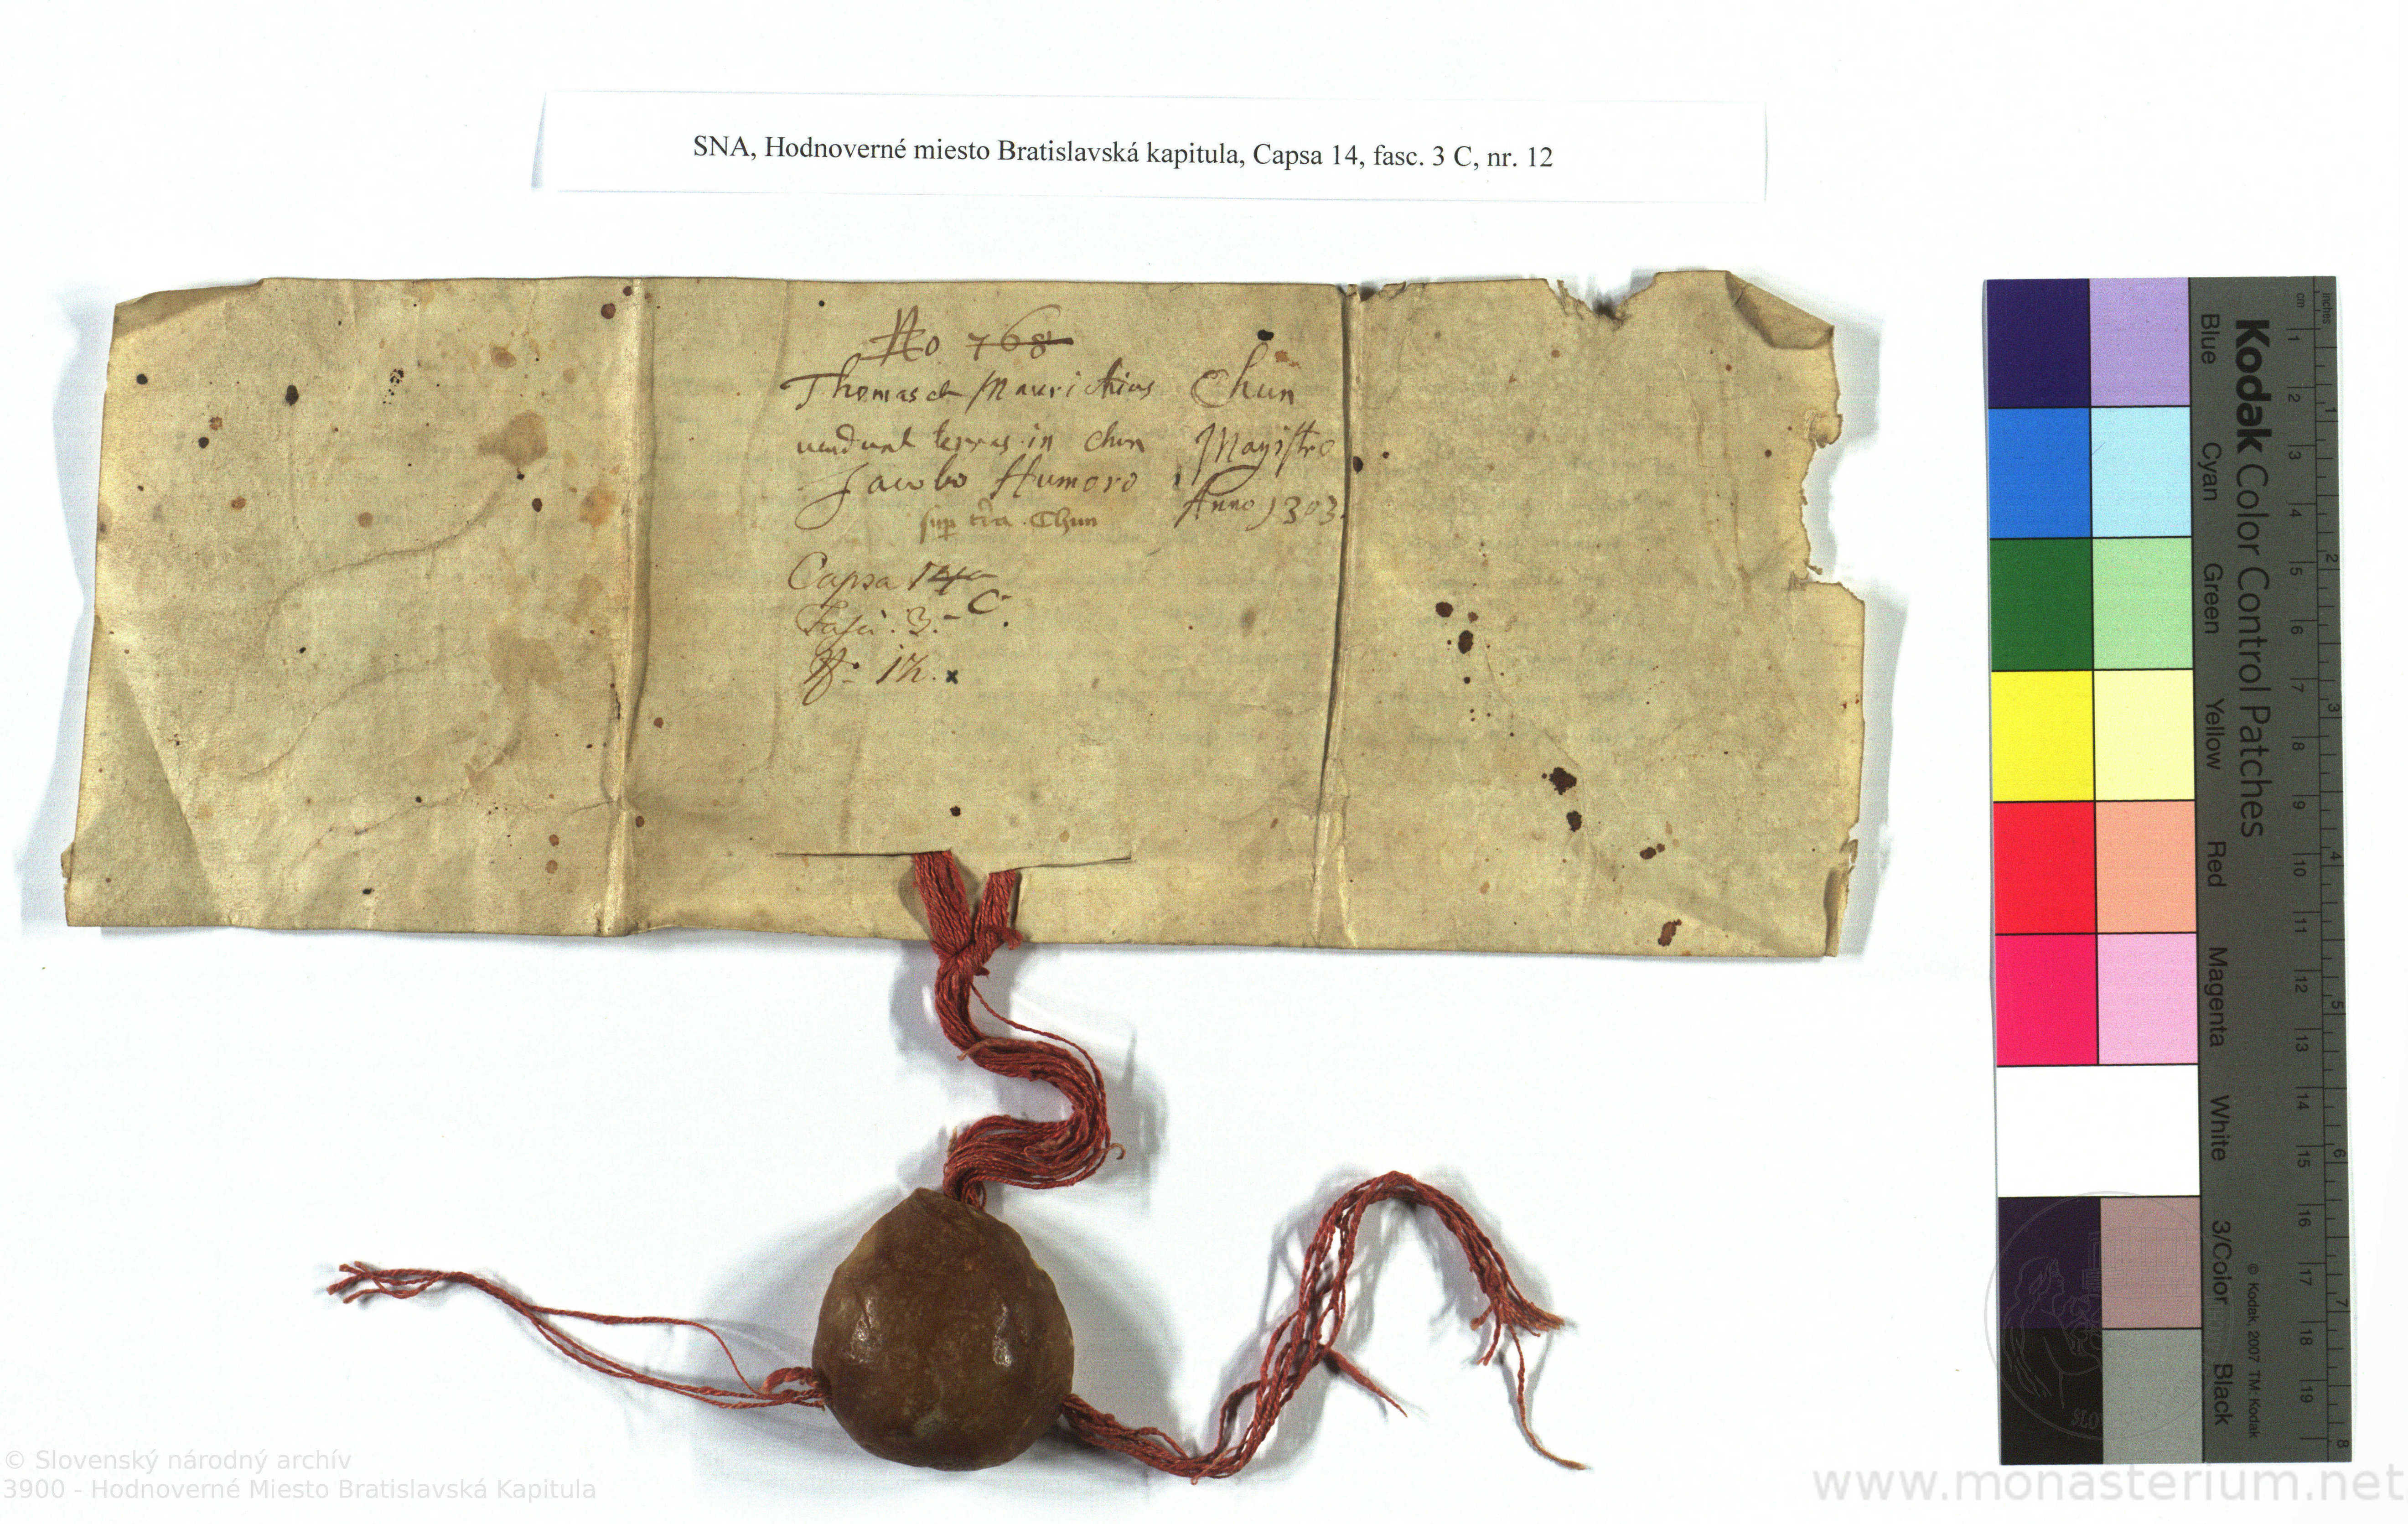 SNA, Hodnoverné miesto Bratislavská kapitula, Capsa 14, fasc. 3 C, nr. 12
No 768
Thomas et Mauritius Chun
vendunt terras in chun Magistro
Jacobo Humoro Anno 1303.
sup t͞ra Chun
Capsa 14a
Fasci. 3. C.
No 12. x
Kodak Color Control Patches
© Kodak, 2007 TM: Kodak
Blue
Cyan
Green
Yellow
Red
Magenta
White
3/Color
Black
cm 1 2 3 4 5 6 7 8 9 10 11 12 13 14 15 16 17 18 19
inches 1 2 3 4 5 6 7 8
© Slovenský národný archív
3900 - Hodnoverné Miesto Bratislavská Kapitula
www.monasterium.net